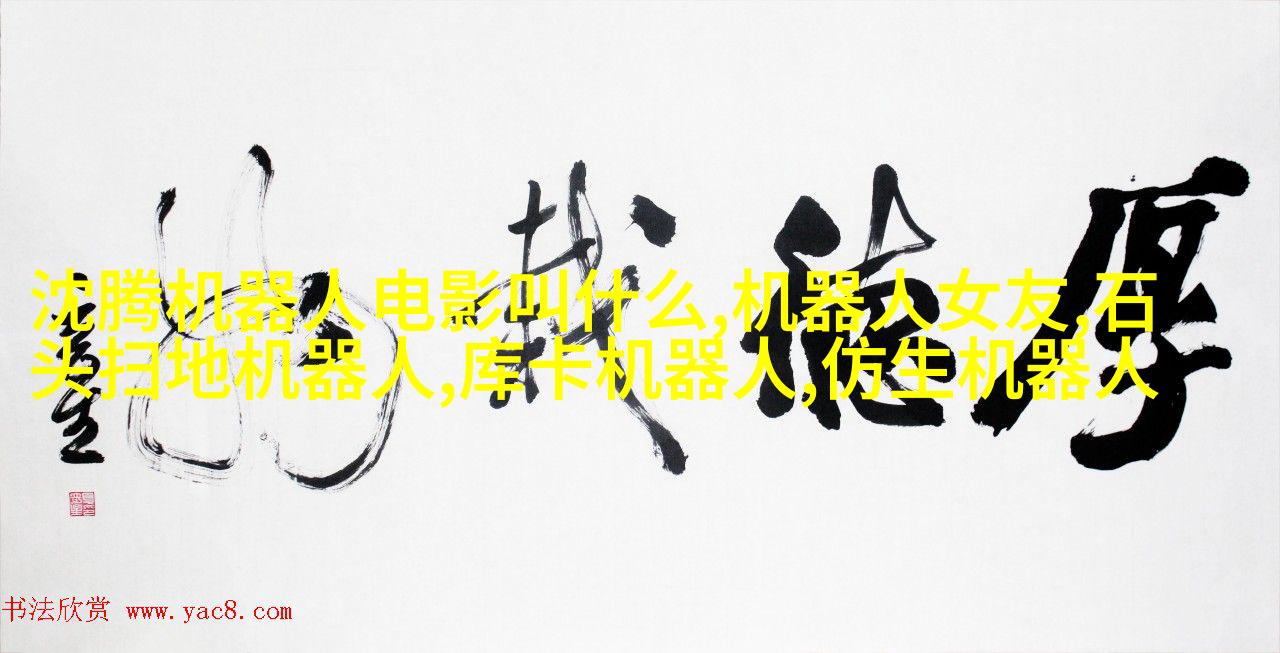 厚德载物
沈腾机器人电影叫什么,机器人女友,石
头扫地机器人,库卡机器人,仿生机器人
书法欣赏 www.yac8.com